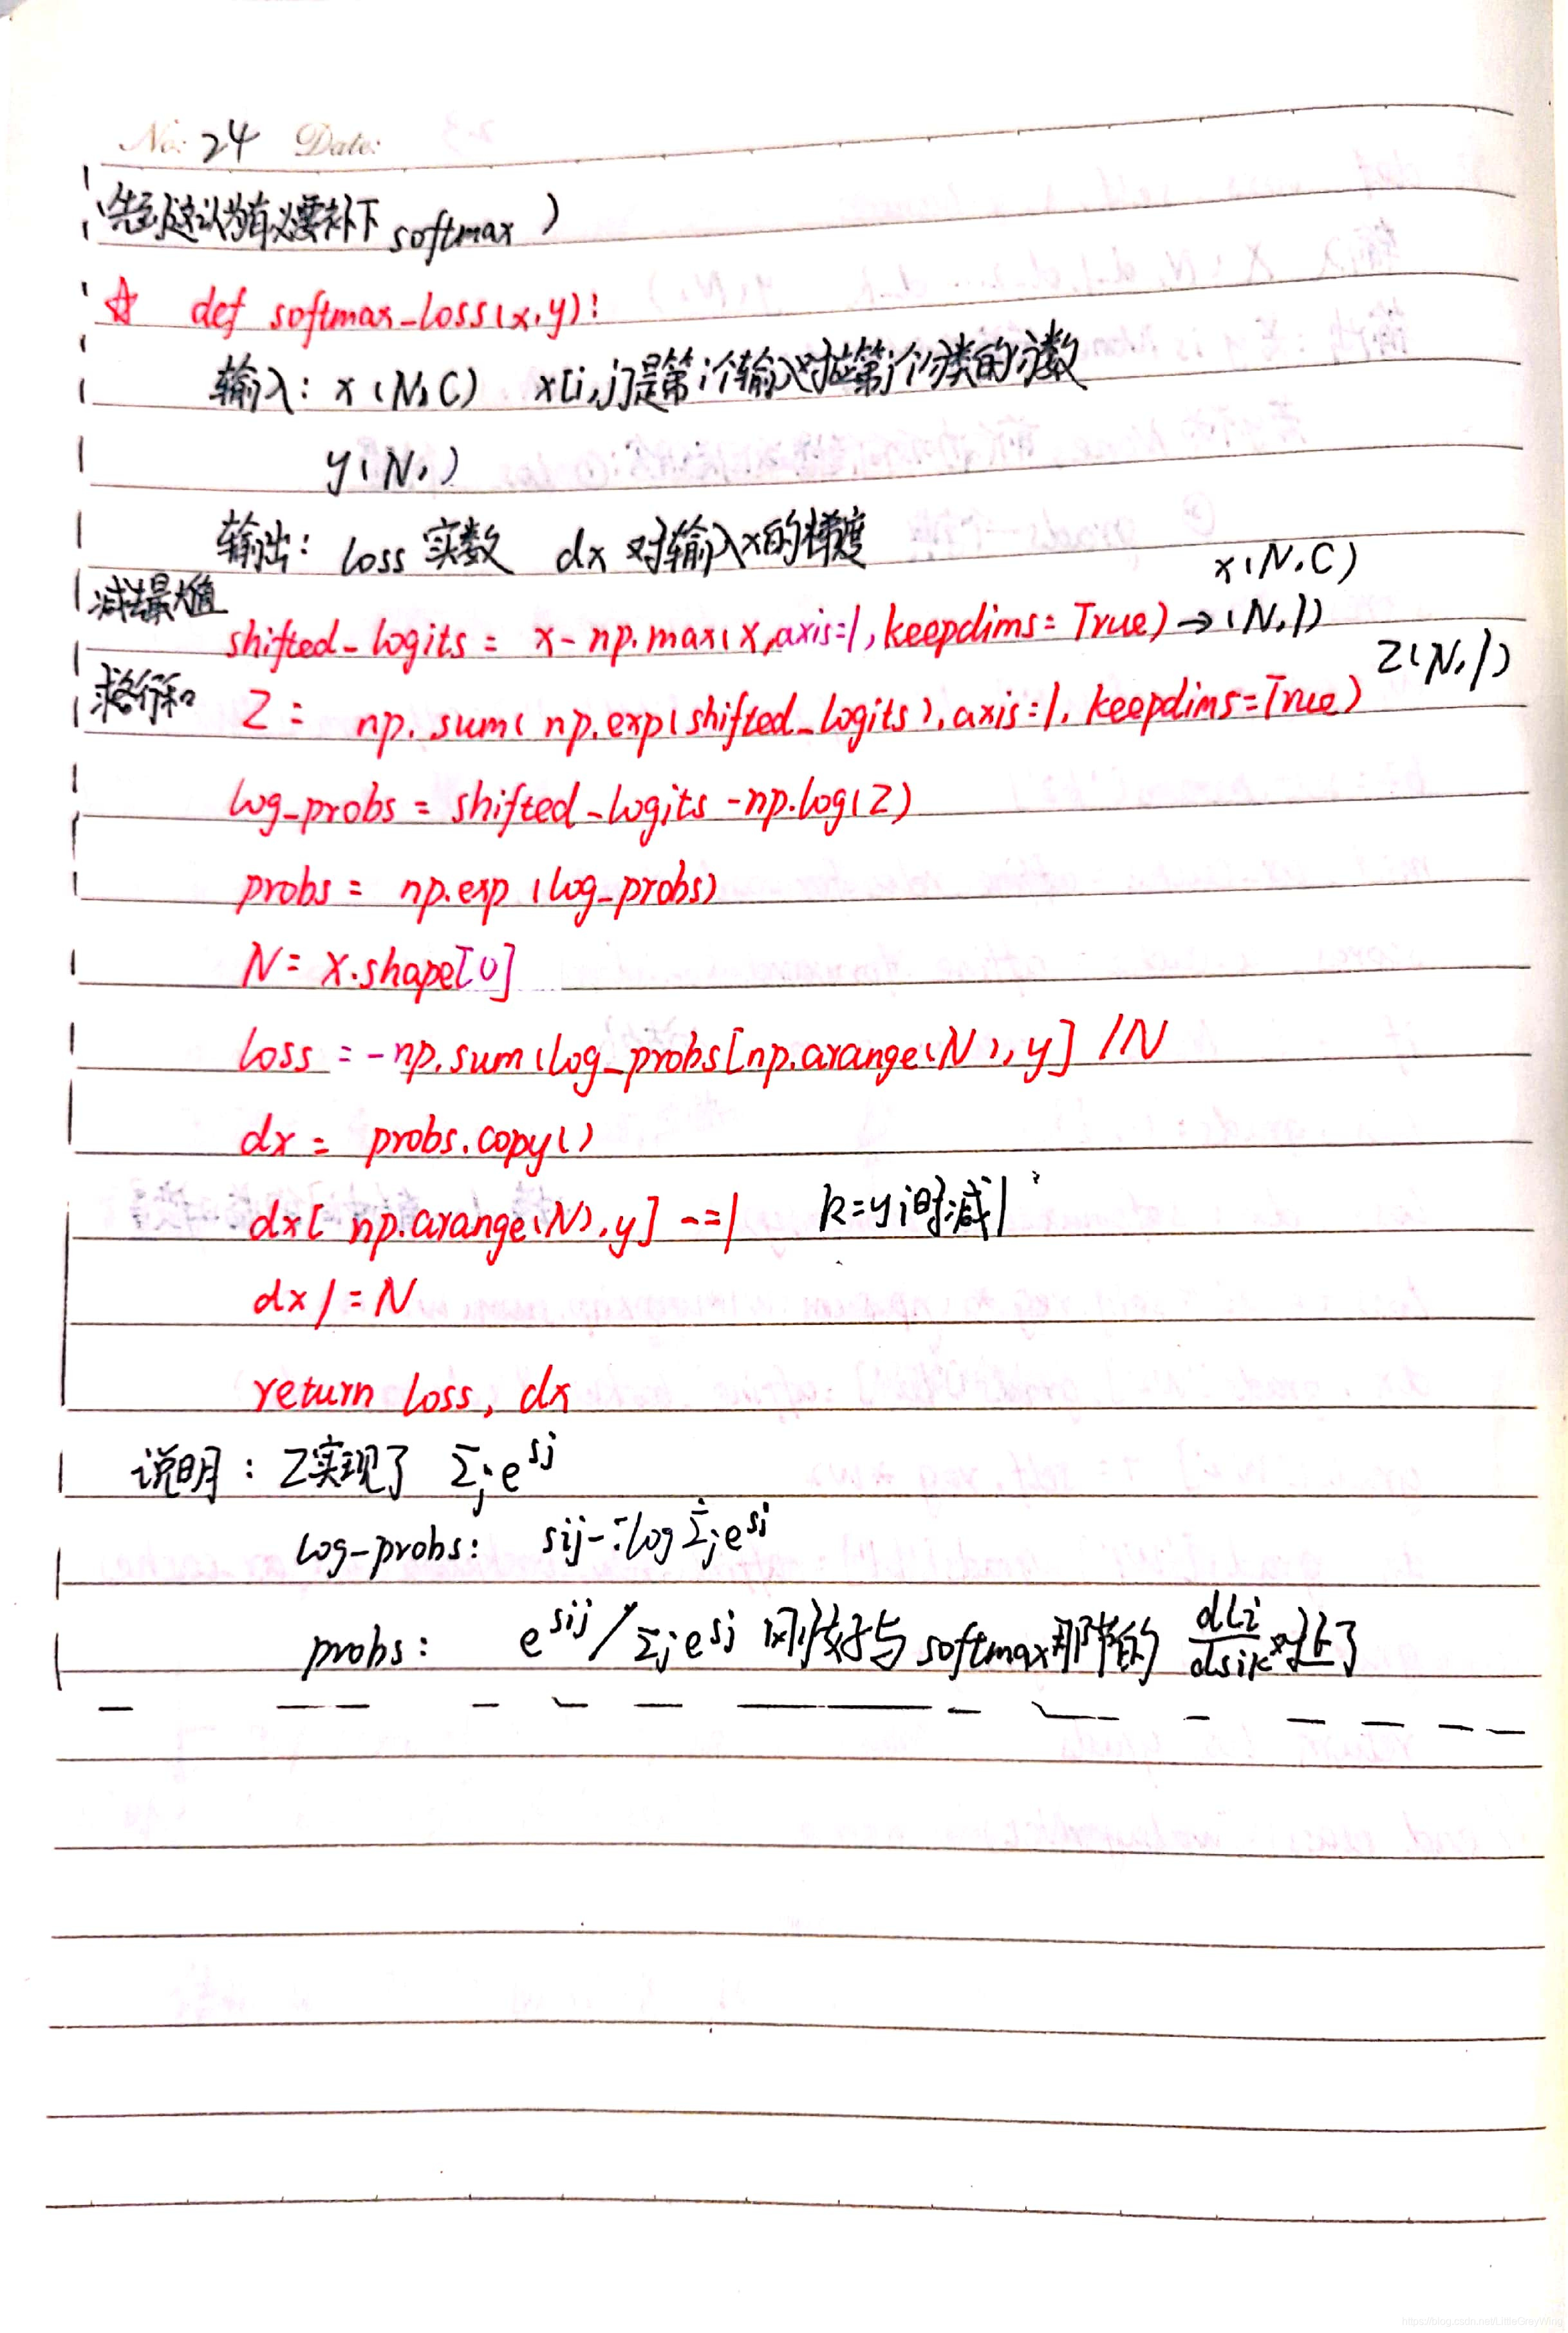 No: 24 Date:
(先到这认为有必要补下 softmax )
☆ def softmax_loss(x,y):
输入: x (N,C) x[i,j]是第i个输入对应第j个分类的分数
y(N,)
输出: loss 实数 dx 对输入x的梯度
x(N,C)
减去最大值
shifted_logits = x-np.max(x,axis=1,keepdims=True)→(N,1)
Z(N,1)
求各行和 Z = np.sum(np.exp(shifted_logits),axis=1,keepdims=True)
log_probs = shifted_logits-np.log(Z)
probs = np.exp(log_probs)
N = x.shape[0]
loss = -np.sum(log_probs[np.arange(N),y] /N
dx = probs.copy()
dx[np.arange(N),y] -=1 k=yi时减1
dx /= N
return loss, dx
说明: Z实现了 Σj e^sj
log-probs: sij-log Σj e^sj
probs: e^sij/Σj e^sj 刚好与softmax那节的 dLi/dsik 对上了
https://blog.csdn.net/LittleGrayWing